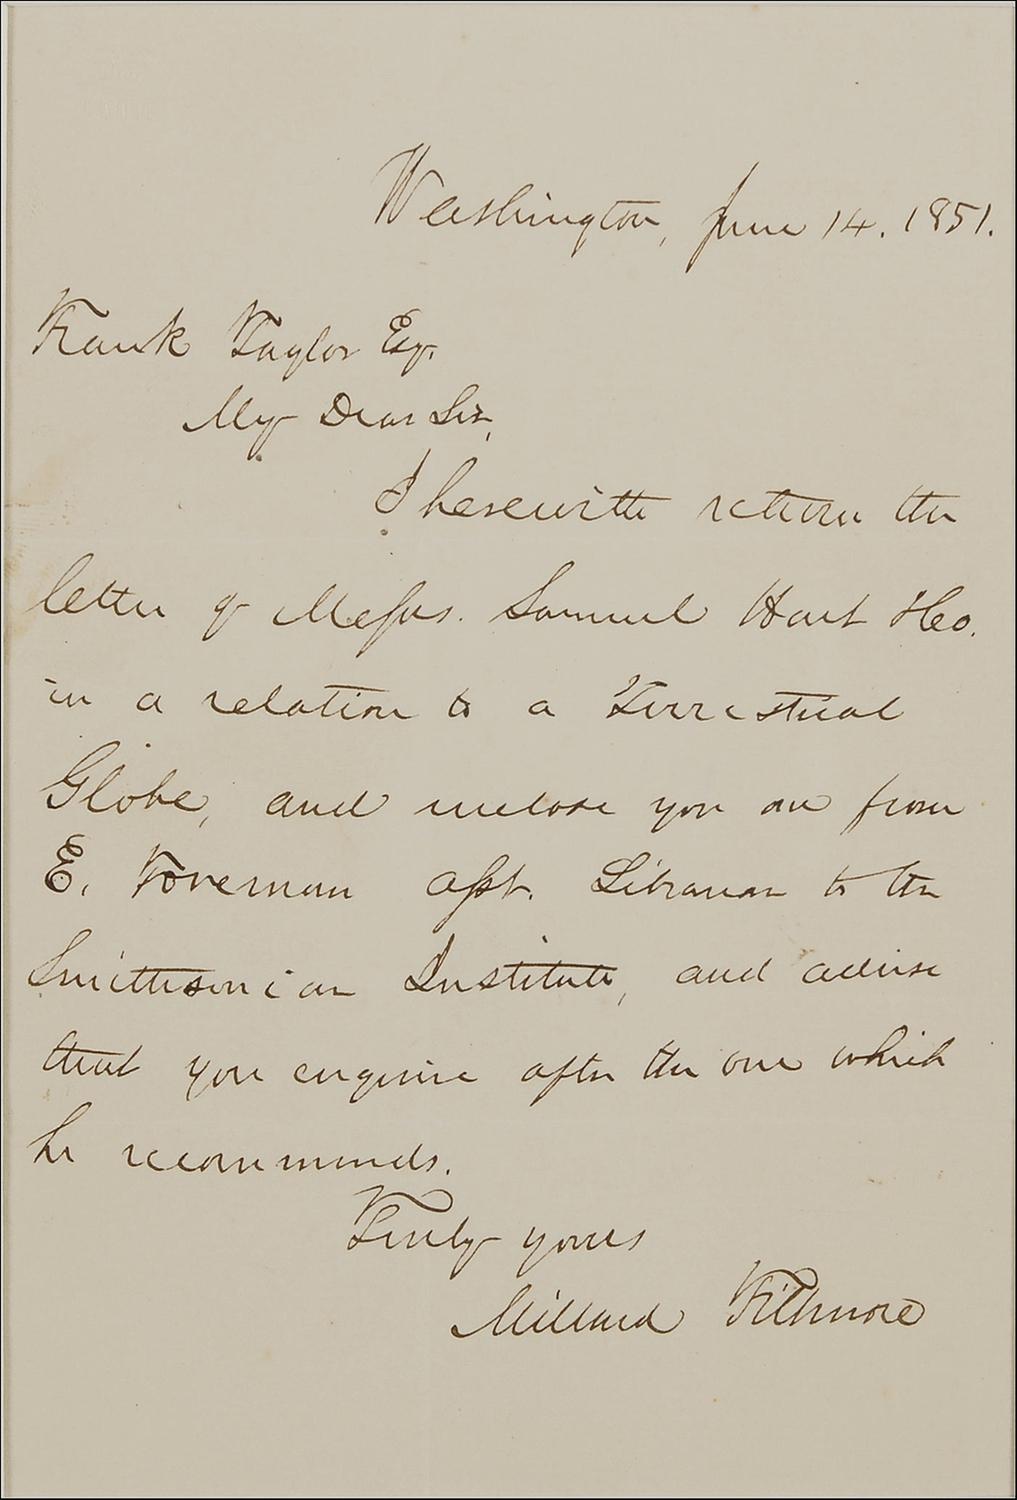 Washington, June 14. 1851.
Frank Taylor Esq.
My Dear Sir,
I herewith return the
letter of Messrs. Samuel Hart &Co.
in a relation to a Terrestrial
Globe, and inclose you one from
E. Foreman asst. Librarian to the
Smithsonian Institute, and advise
that you enquire after the one which
he recommends.
Truly yours
Millard Fillmore